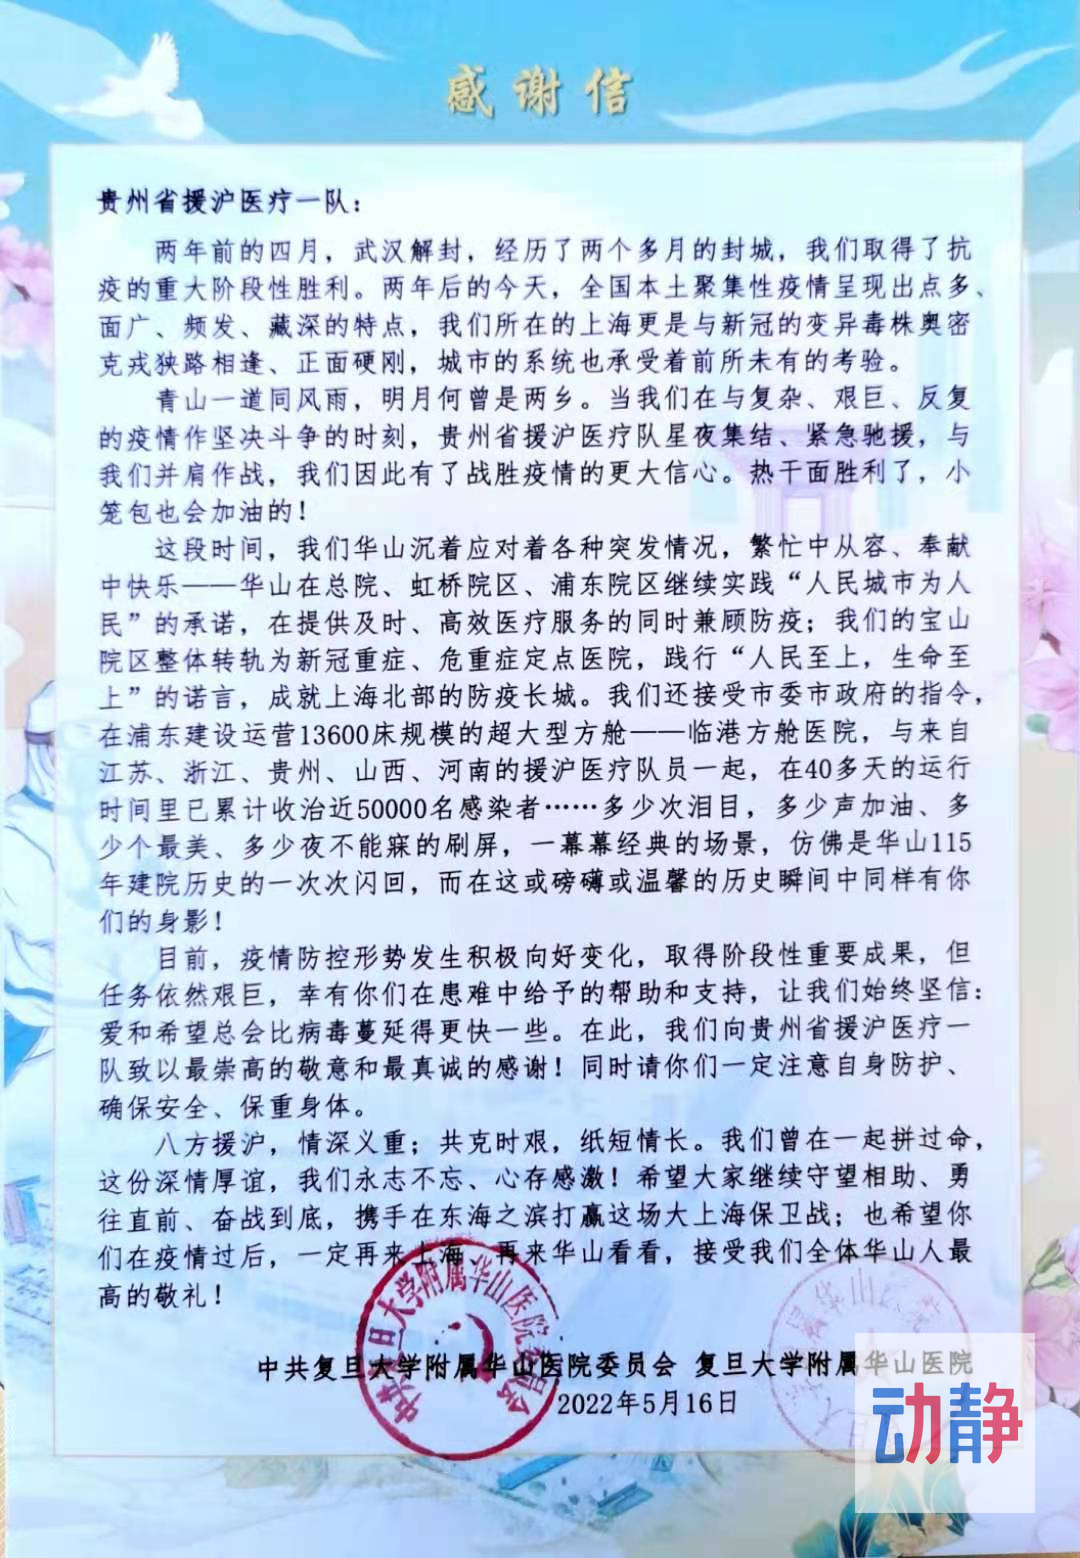 感谢信
贵州省援沪医疗一队：
两年前的四月，武汉解封，经历了两个多月的封城，我们取得了抗
疫的重大阶段性胜利。两年后的今天，全国本土聚集性疫情呈现出点多、
面广、频发、藏深的特点，我们所在的上海更是与新冠的变异毒株奥密
克戎狭路相逢、正面硬刚，城市的系统也承受着前所未有的考验。
青山一道同风雨，明月何曾是两乡。当我们在与复杂、艰巨、反复
的疫情作坚决斗争的时刻，贵州省援沪医疗队星夜集结、紧急驰援，与
我们并肩作战，我们因此有了战胜疫情的更大信心。热干面胜利了，小
笼包也会加油的！
这段时间，我们华山沉着应对着各种突发情况，繁忙中从容、奉献
中快乐——华山在总院、虹桥院区、浦东院区继续实践“人民城市为人
民”的承诺，在提供及时、高效医疗服务的同时兼顾防疫；我们的宝山
院区整体转轨为新冠重症、危重症定点医院，践行“人民至上，生命至
上”的诺言，成就上海北部的防疫长城。我们还接受市委市政府的指令，
在浦东建设运营13600床规模的超大型方舱——临港方舱医院，与来自
江苏、浙江、贵州、山西、河南的援沪医疗队员一起，在40多天的运行
时间里已累计收治近50000名感染者……多少次泪目，多少声加油、多
少个最美、多少夜不能寐的刷屏，一幕幕经典的场景，仿佛是华山115
年建院历史的一次次闪回，而在这或磅礴或温馨的历史瞬间中同样有你
们的身影！
目前，疫情防控形势发生积极向好变化，取得阶段性重要成果，但
任务依然艰巨，幸有你们在患难中给予的帮助和支持，让我们始终坚信：
爱和希望总会比病毒蔓延得更快一些。在此，我们向贵州省援沪医疗一
队致以最崇高的敬意和最真诚的感谢！同时请你们一定注意自身防护、
确保安全、保重身体。
八方援沪，情深义重；共克时艰，纸短情长。我们曾在一起拼过命，
这份深情厚谊，我们永志不忘、心存感激！希望大家继续守望相助、勇
往直前、奋战到底，携手在东海之滨打赢这场大上海保卫战；也希望你
们在疫情过后，一定再来上海，再来华山看看，接受我们全体华山人最
高的敬礼！
中共复旦大学附属华山医院委员会 复旦大学附属华山医院
2022年5月16日
动静